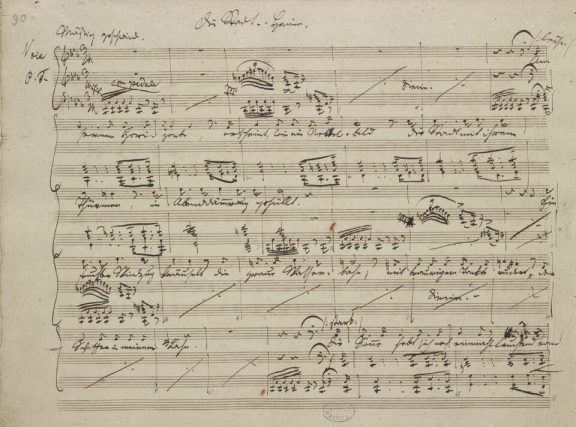 30
Die Stadt. Heine.
Mäßig geschwind.
(leise)
Voce
Am
P.F.
con pedale
ppp
Simin.
fernen Horizonte erscheint, wie ein Nebel-bild die Stadt mit ihren
Thürmen in Abenddämmrung gehüllt. Ein
feuchter Windzug kräuselt die graue Wasser-bahn, mit traurigem Takte rudert der
Simin.
(stark)
Schiffer in meinem Kahn. Die Sonne hebt sich noch einmahl leuchtend vom